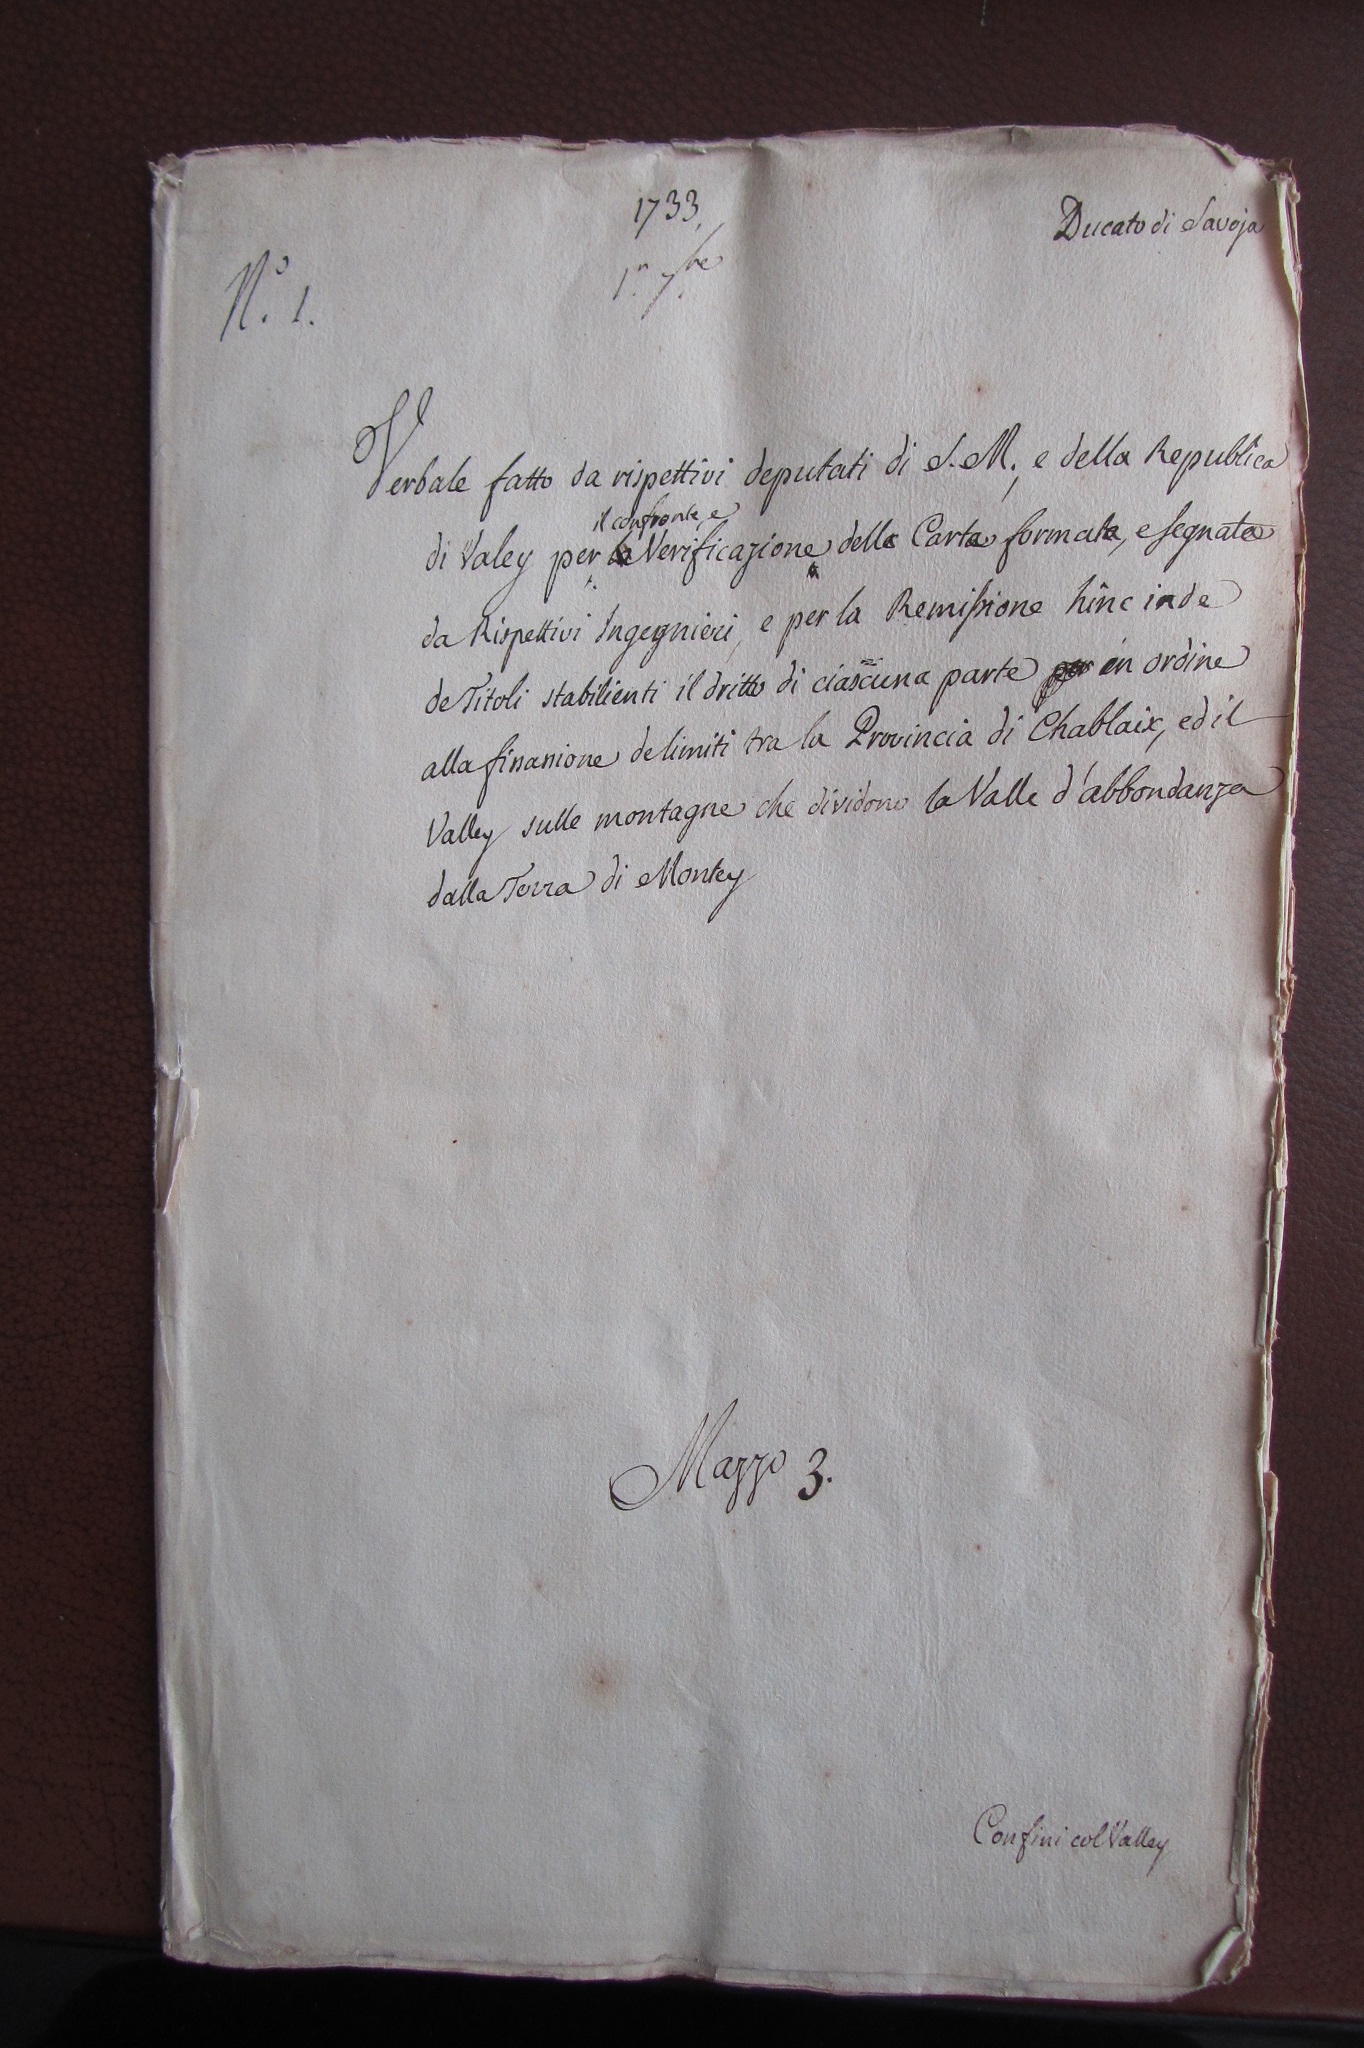 1733.
Ducato di Savoja
1.º 7.bre
N.º 1.
Verbale fatto da rispettivi deputati di S. M., e della Republica
il confronto, e
di Valey per la Verificazione delle Carte formate, e segnate
da Rispettivi Ingegnieri, e per la Remissione hinc inde
de Titoli stabilienti il dritto di ciascuna parte per in ordine
alla de limiti tra la Provincia di Chablaix, ed il
Valley sulle montagne che dividono la Valle d'abbondanza
dalla Terra di Montey
Mazzo 3.
Confini col Valley